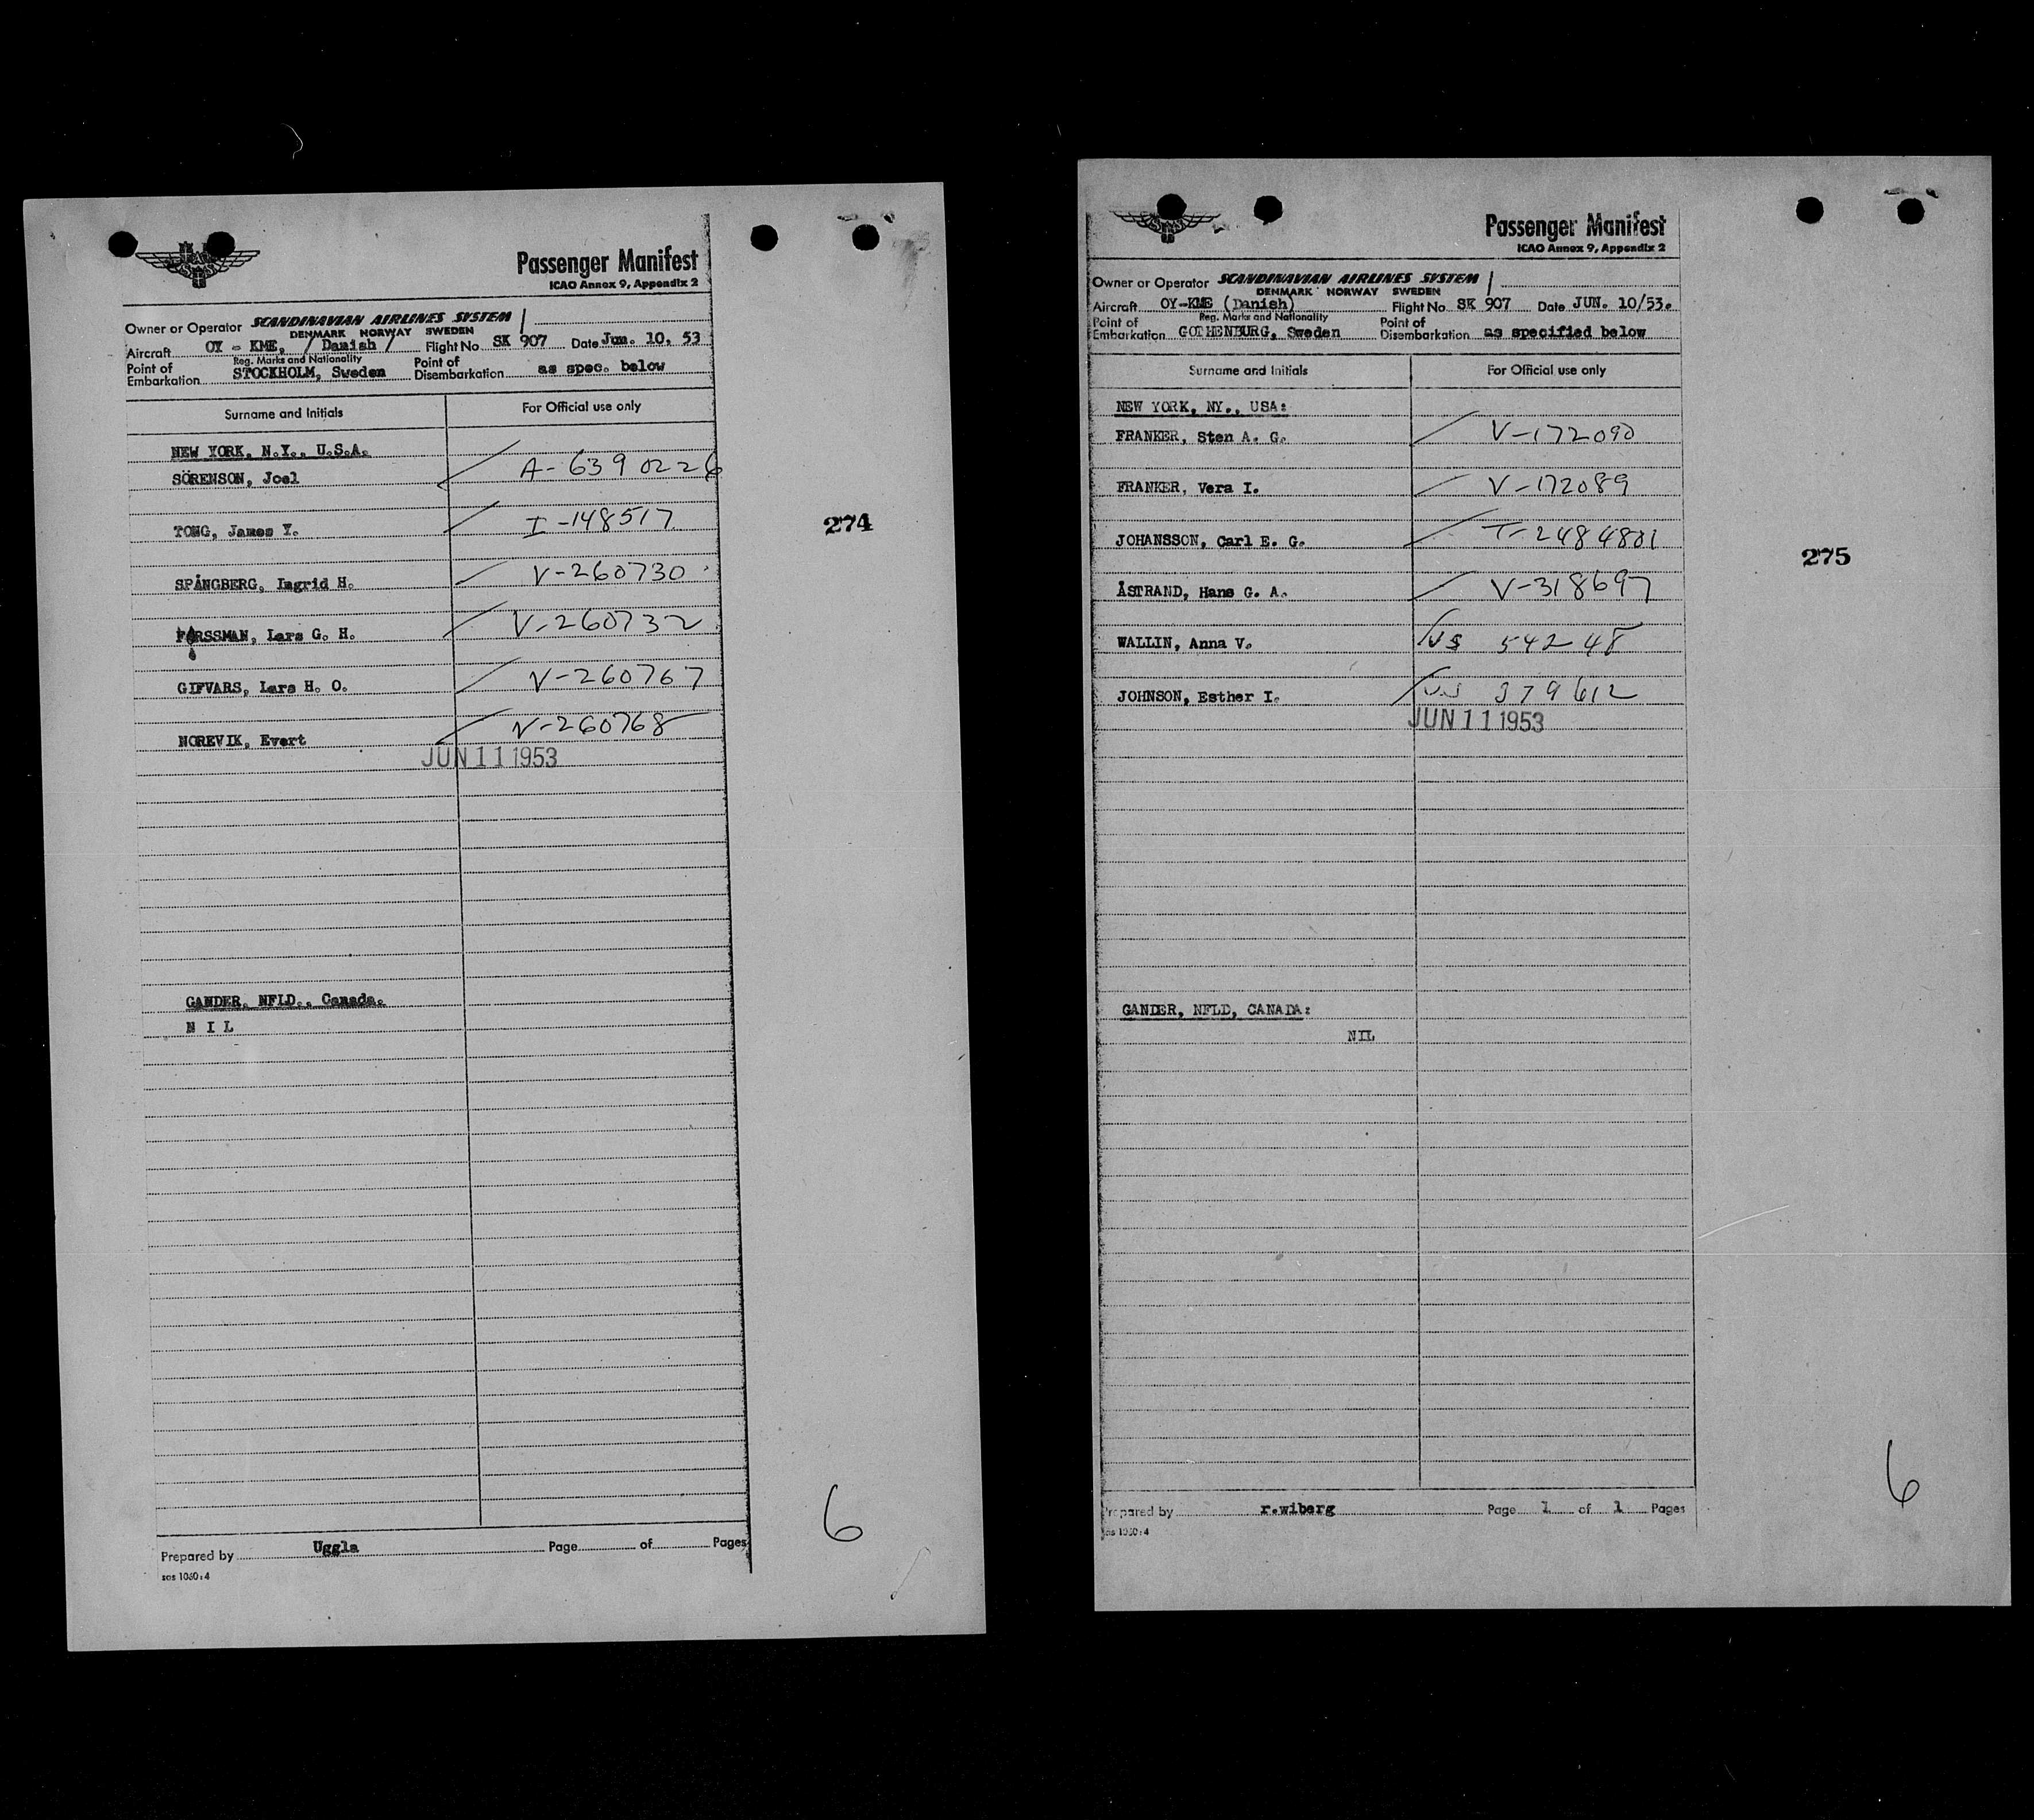 Passenger Manifest
ICAO Annex 9, Appendix 2
Owner or Operator SCANDINAVIAN AIRLINES SYSTEM
DENMARK NORWAY SWEDEN
Aircraft OY - KME, / Danish / Flight No SK 907 Date Jun. 10, 53
Reg. Marks and Nationality
Point of Embarkation STOCKHOLM, Sweden Point of Disembarkation as spec. below
Surname and Initials For Official use only
NEW YORK, N.Y., U.S.A.
SÖRENSON, Joel A-6390226
TONG, James Y. I-148517
SPÅNGBERG, Ingrid H. V-260730
FORSSMAN, Lars G. H. V-260732
GIFVARS, Lars H. O. V-260767
NOREVIK, Evert V-260768
JUN 11 1953
GANDER, NFLD., Canada.
N I L
Prepared by Uggla Page of Pages
sas 1060:4
274
6
Passenger Manifest
ICAO Annex 9, Appendix 2
Owner or Operator SCANDINAVIAN AIRLINES SYSTEM
DENMARK NORWAY SWEDEN
Aircraft OY-KME (Danish) Flight No SK 907 Date JUN. 10/53.
Reg. Marks and Nationality
Point of Embarkation GOTHENBURG, Sweden Point of Disembarkation as specified below
Surname and Initials For Official use only
NEW YORK, NY., USA:
FRANKER, Sten A. G. V-172090
FRANKER, Vera I. V-172089
JOHANSSON, Carl E. G. T-2484801
ÅSTRAND, Hans G. A. V-318697
WALLIN, Anna V. US 54248
JOHNSON, Esther I. US 379612
JUN 11 1953
GANDER, NFLD, CANADA:
NIL
Prepared by r.wiberg Page 1 of 1 Pages
sas 1060:4
275
6